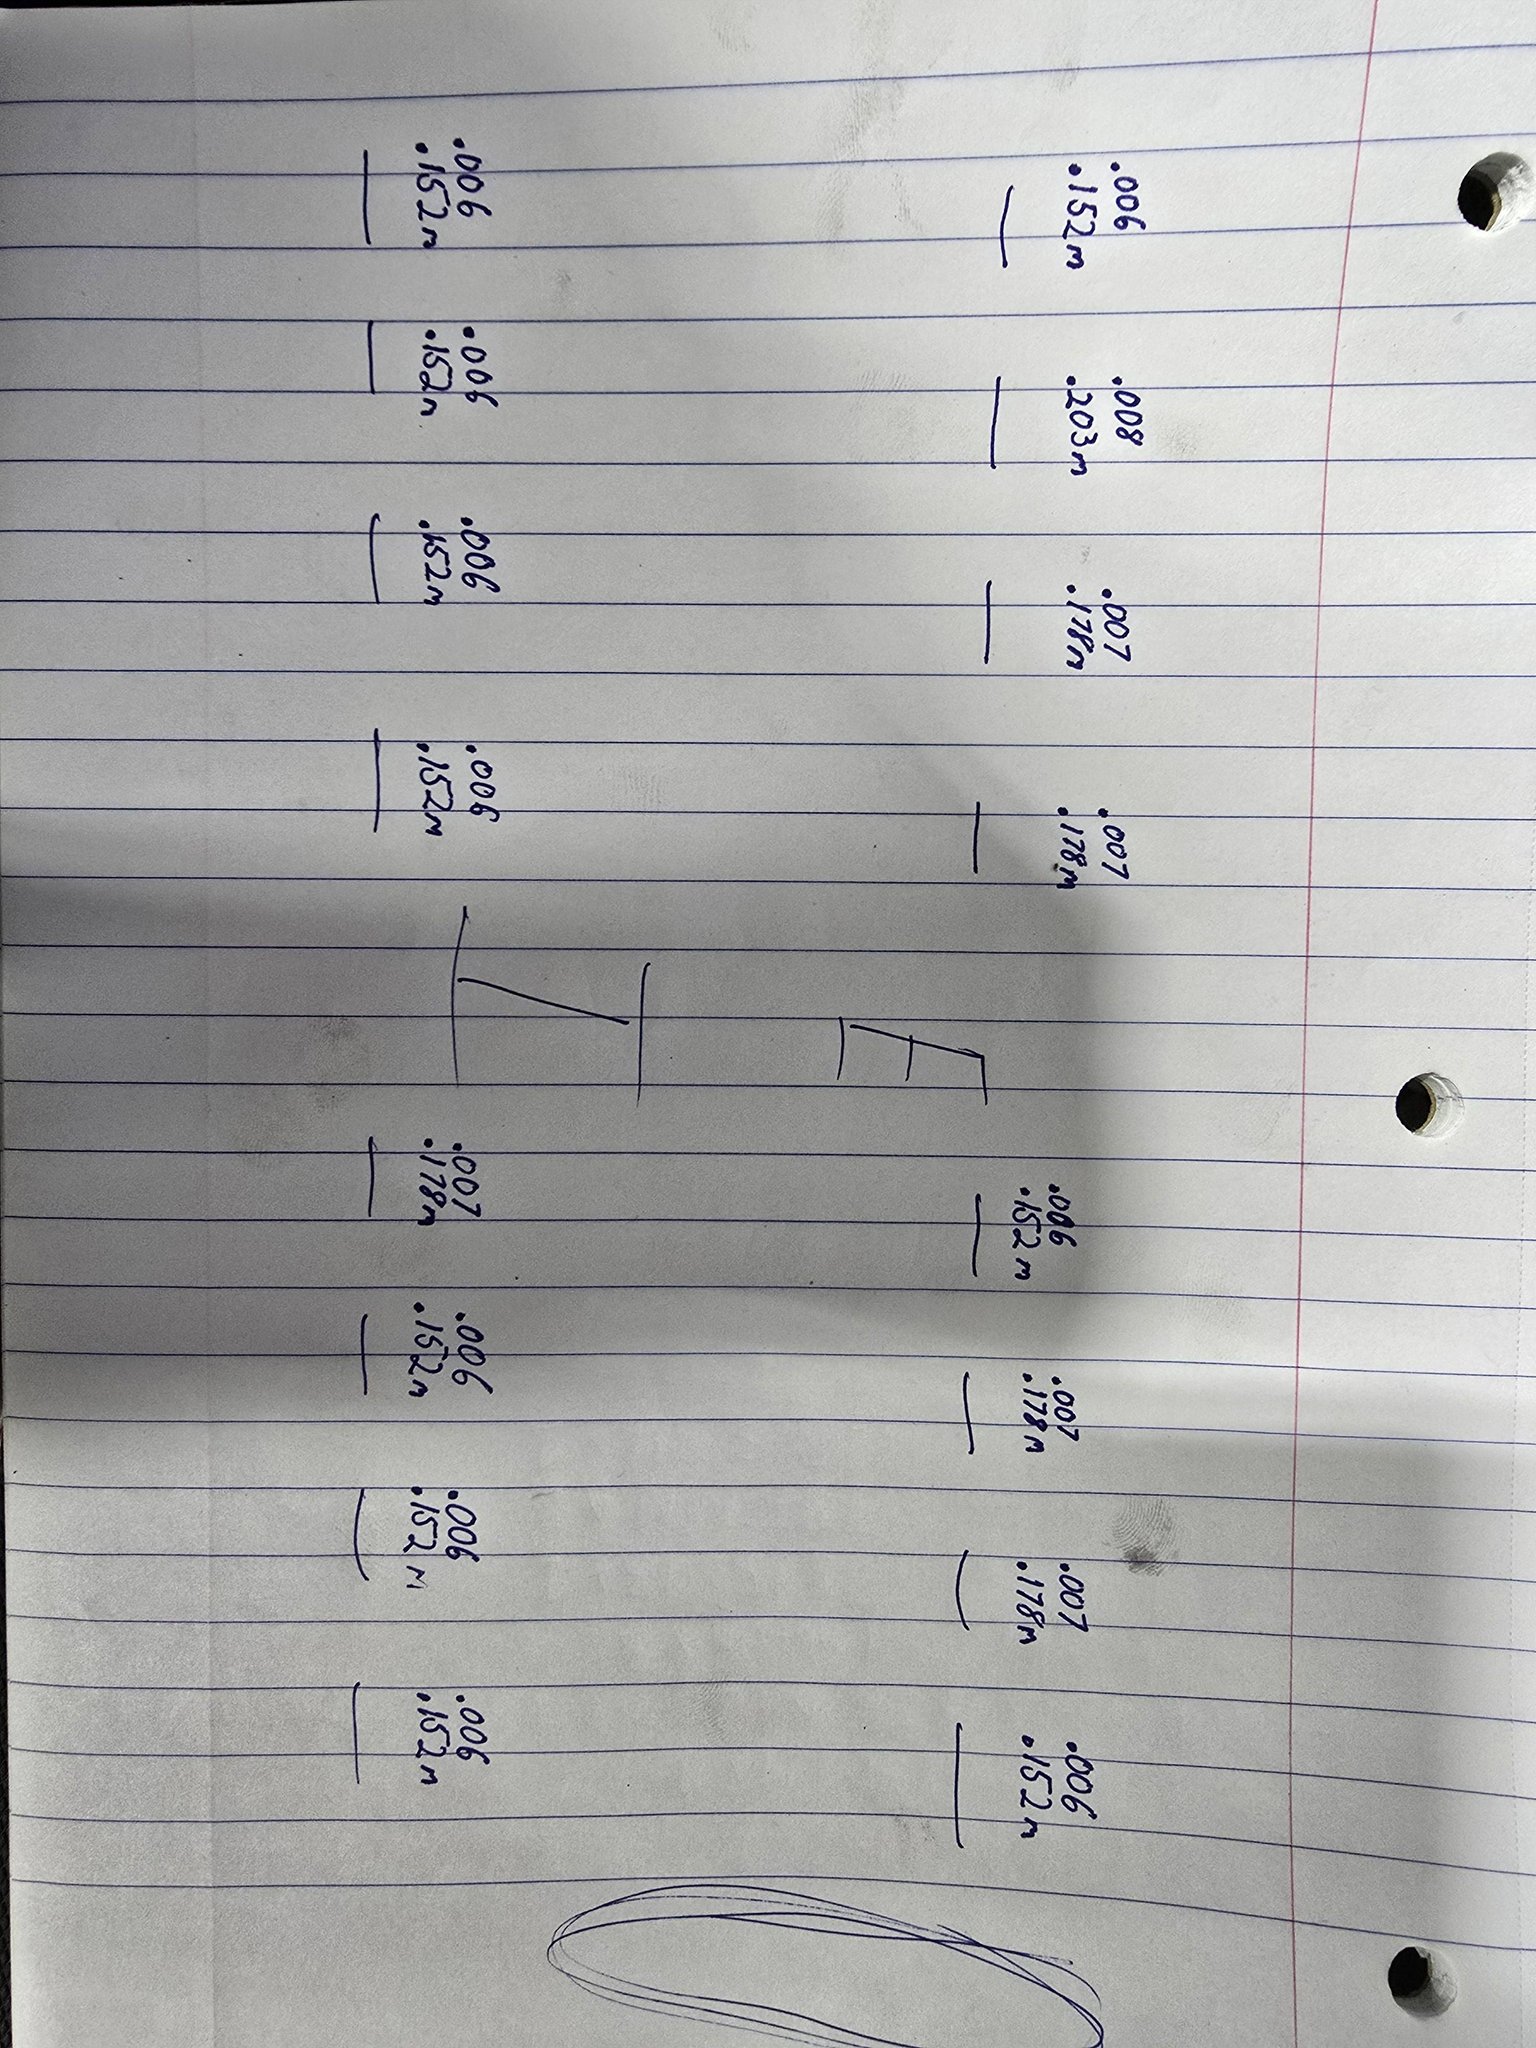 .006 .008 .007 .007 .006 .007 .007 .006
.152m .203m .178m .178m .152m .178m .178m .152m
E
I
.006 .006 .006 .006 .007 .006 .006 .006
.152m .152m .152m .152m .178m .152m .152m .152m